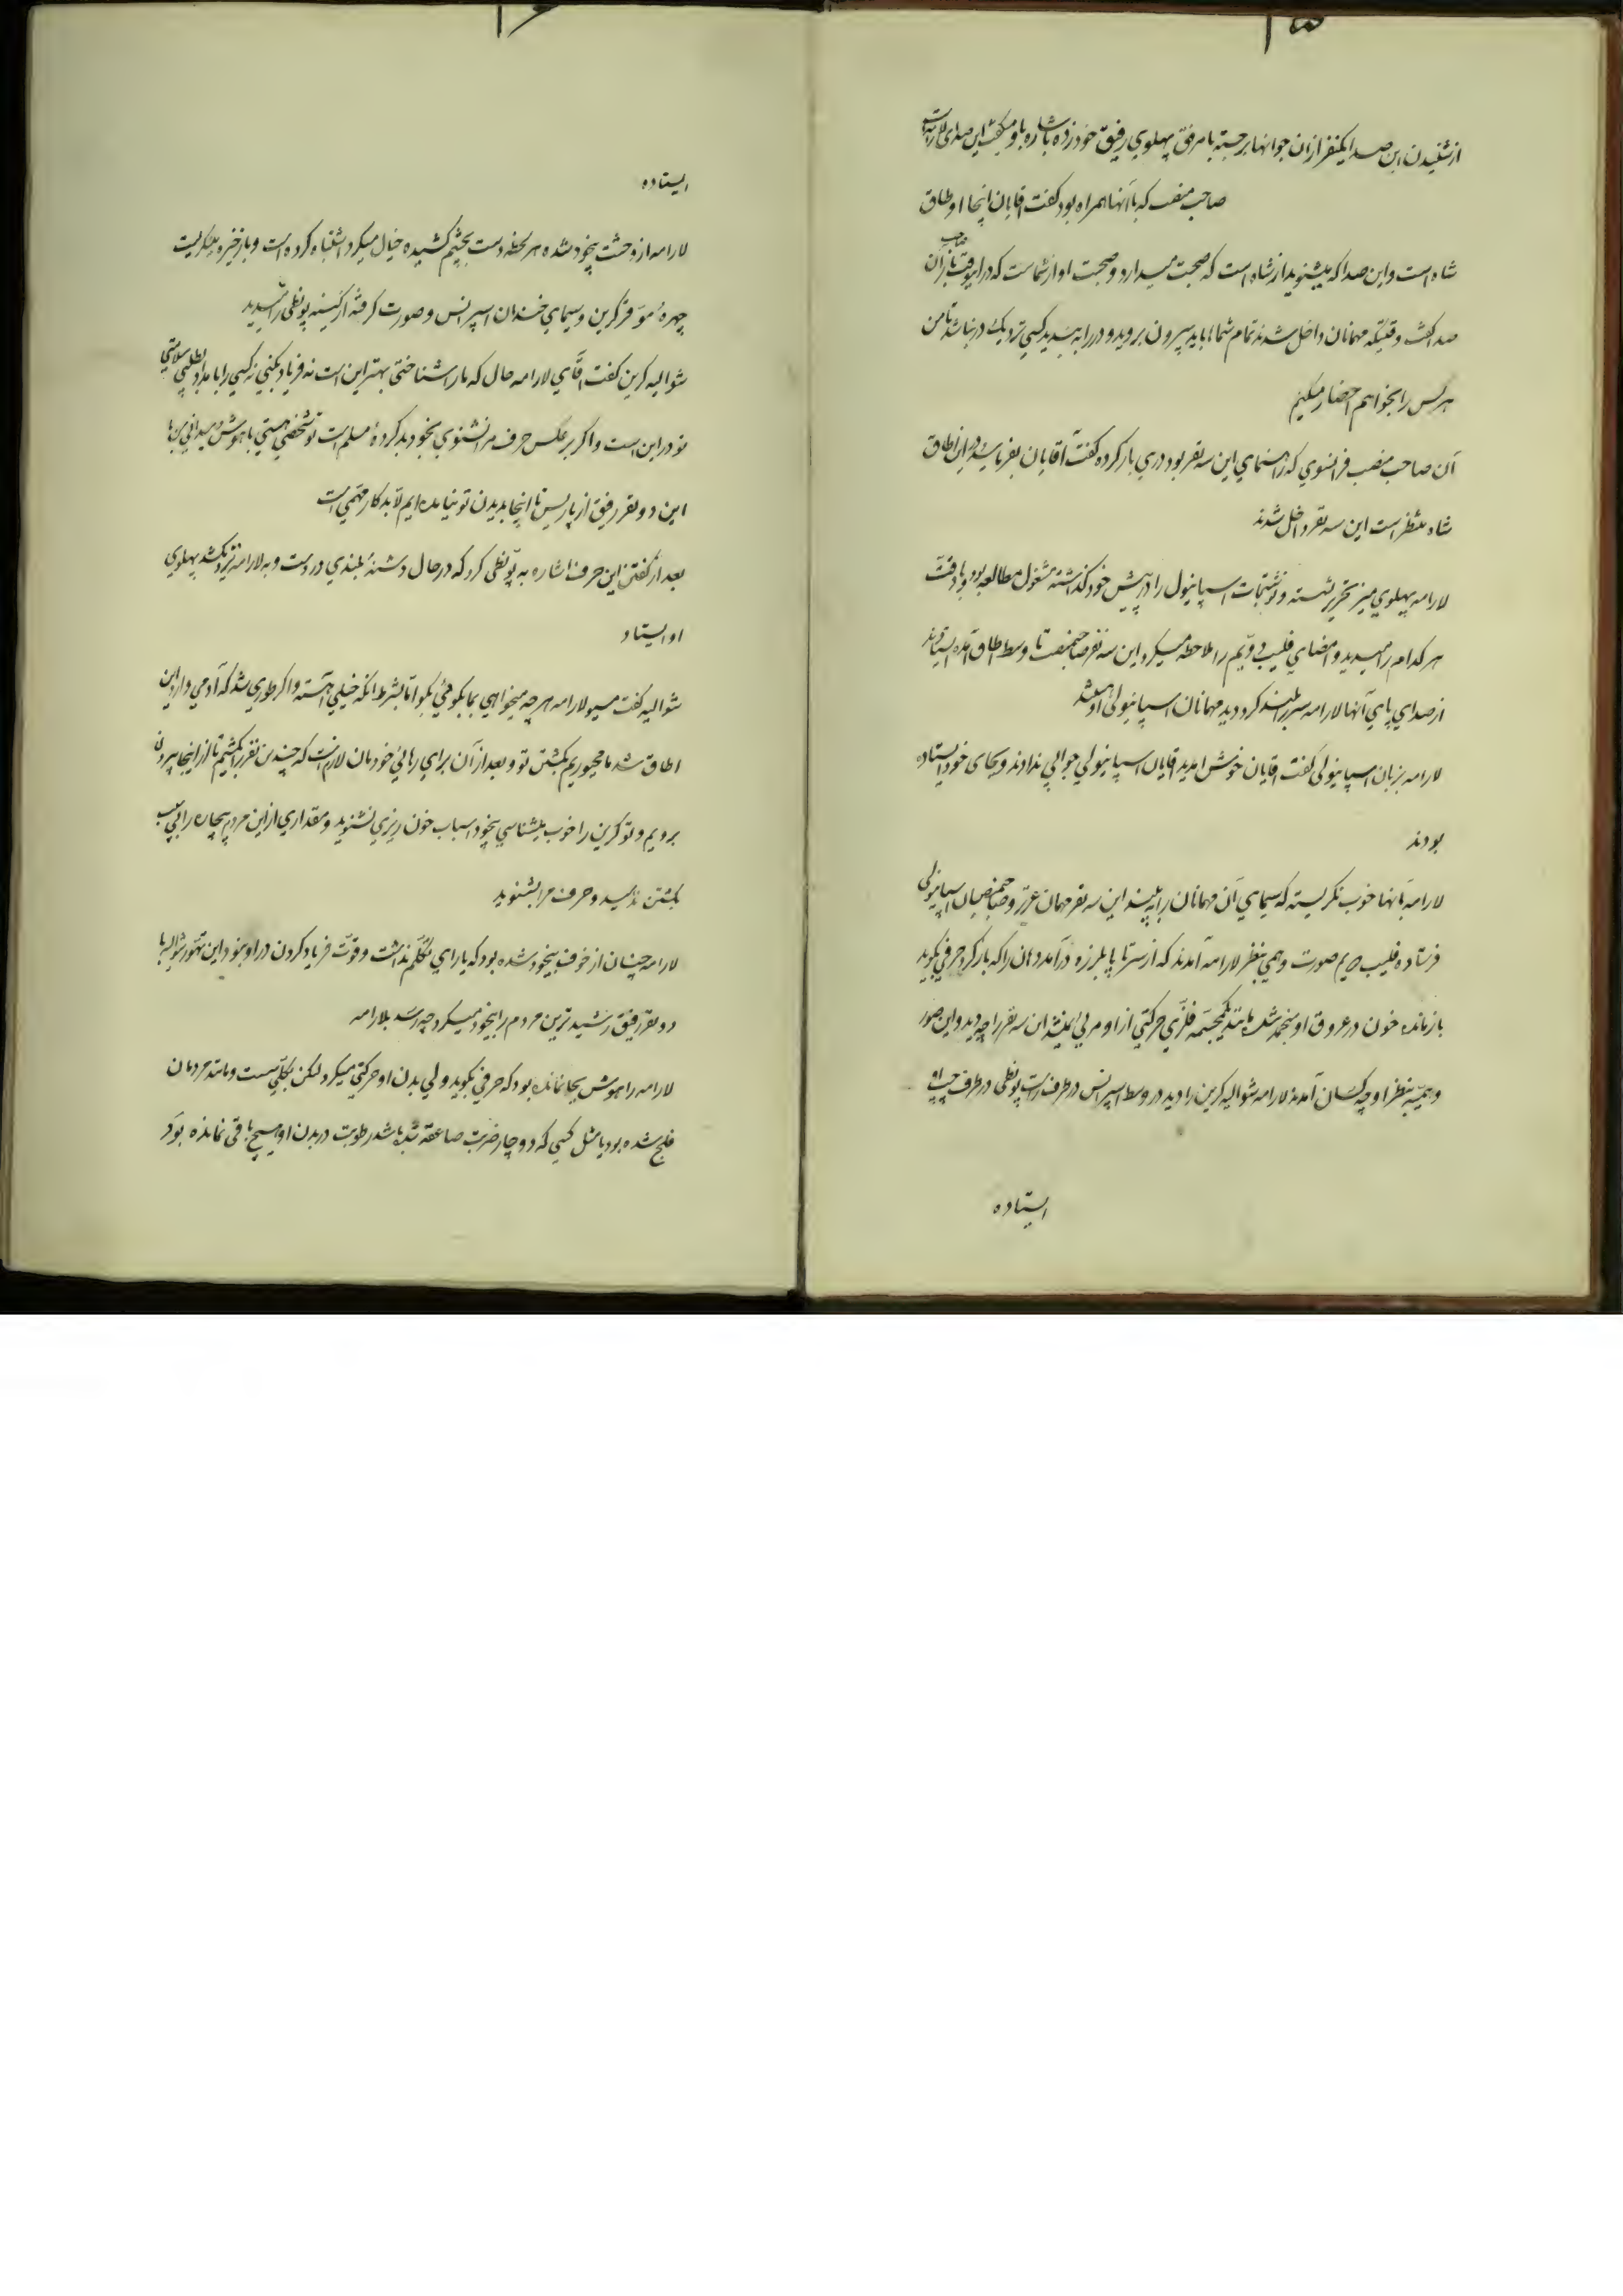 ۱۵
از شنیدن این صدا یکنفر ازان جوانها برجسته با مرفق پهلوی رفیق خود زده باشاره باو میگفت این صدای لارامه است
صاحب منصب که باآنها همراه بود گفت اقایان اینجا اوطاق
شاه است واین صدا که میشنوید از شاه است که صحبت میدارد وصحبت او از شماست که دراینوقت باز آن صاحب
صدا گفت وقتیکه مهمانان داخل شدند تمام شماها باید بیرون بروید و در را به بندید کسی نزدیک در نباشد تا من
هرکس را بخواهم احضار میکنیم
آن صاحب منصب فرانسوی که راهنمای این سه نفر بود دری باز کرده گفت آقایان بفرمائید در این اطاق
شاه منتظر است این سه نفر داخل شدند
لارامه پهلوی میز تحریر نشسته ونوشتجات اسپانیول را در پیش خود گذاشته مشغول مطالعه بود وبادقت
هرکدام را میدید وامضای فلیپ دویم را ملاحظه میکرد این سه نفر صاحبمنصب تا وسط اطاق آمده ایستادند
از صدای پای آنها لارامه سر بلند کرد دید مهمانان اسپانیولی او هستند
لارامه بزبان اسپانیولی گفت اقایان خوش امدید اقایان اسپانیولی جوابی ندادند وبجای خود ایستاده
بودند
لارامه بآنها خوب نگریسته که سیمای آن مهمانان را به بیند این سه نفر مهمان عزیز وصاحبمنصبان اسپانیولی
فرستاده فلیپ دویم صورت وهمی بنظر لارامه آمدند که از سر تا پا بلرزه درآمد دهان را که باز کرد حرفی بگوید
باز مانده خون در عروق او منجمد شده مانند یکمجسمه فلزی حرکتی از او مرئی نمیشد این سه نفر را چه دید واین صور
وهمیه بنظر او چه کسان آمدند لارامه شوالیه کرین را دید در وسط اسپرانس در طرف راست پونطی در طرف چپ او
ایستاده
۱۶
ایستاده
لارامه از وحشت بیخود شده هر لحظه دست بچشم کشیده خیال میکرد اشتباه کرده است وباز خیره مینگریست
چهرهٔ موقر کرین وسیمای خندان اسپرانس وصورت گرفته از کینه پونطی را میدید
شوالیه کرین گفت اقای لارامه حال که ما را شناختی بهتر این است نه فریاد بکنی نه کسی را بامداد بطلبی سلامتی
تو در این است واگر برعکس حرف مرا نشنوی بخود بد کردهٔ مسلم است تو شخصی هستی باهوش میدانی من با
این دو نفر رفیق از پاریس تا اینجا بدیدن تو نیامده ایم لابد کار مهمی است
بعد از گفتن این حرف اشاره به پونطی کرد که در حال دشنهٔ بلندی در دست وبه لارامه نزدیک شد پهلوی
او ایستاد
شوالیه گفت مسیو لارامه هرچه میخواهی بما بگوئی بگو اما بشرط انکه خیلی آهسته واگر طوری شد که آدمی وارد این
اطاق شد ما مجبوریم بکشتن تو وبعد از آن برای رهائی خودمان لازم است که چندین نفر را بکشیم تا از اینجا بیرون
برویم وتو کرین را خوب میشناسی بیخود اسباب خون ریزی نشوید ومقداری از این مردم بیچاره را بی سبب
بکشتن ندهید وحرف مرا بشنوید
لارامه چنان از خوف بیخود شده بود که یارای تکلم نداشت وقوت فریاد کردن در او نبود این تهور شوالیه با
دو نفر رفیق رشیدترین مردم را بیخود میکرد چه رسد بلارامه
لارامه را هوش بجا نمانده بود که حرفی بگوید ولی بدن او حرکتی میکرد لکن بکلی سست ومانند مردمان
فلج شده بود یا مثل کسی که دوچار ضربت صاعقه شده باشد رطوبت در بدن او هیچ باقی نمانده بود